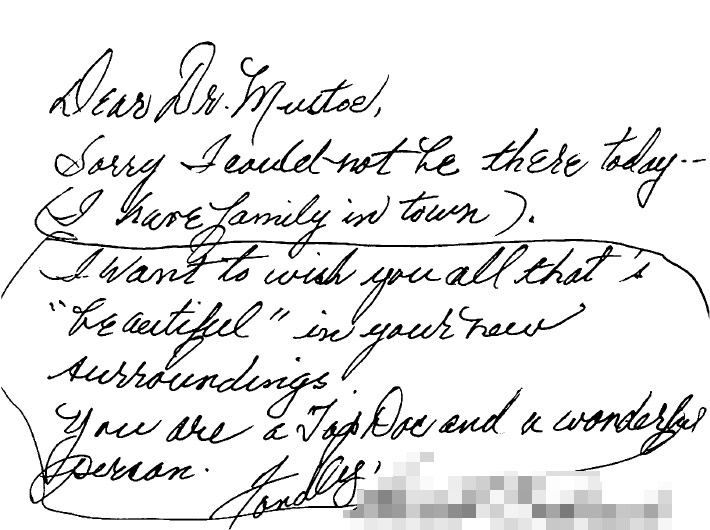 Dear Dr. Mustoe,
Sorry I could not be there today--
(I have family in town).
I want to wish you all that's
"beautiful" in your new
surroundings.
You are a Top Doc and a wonderful
person. Fondly,